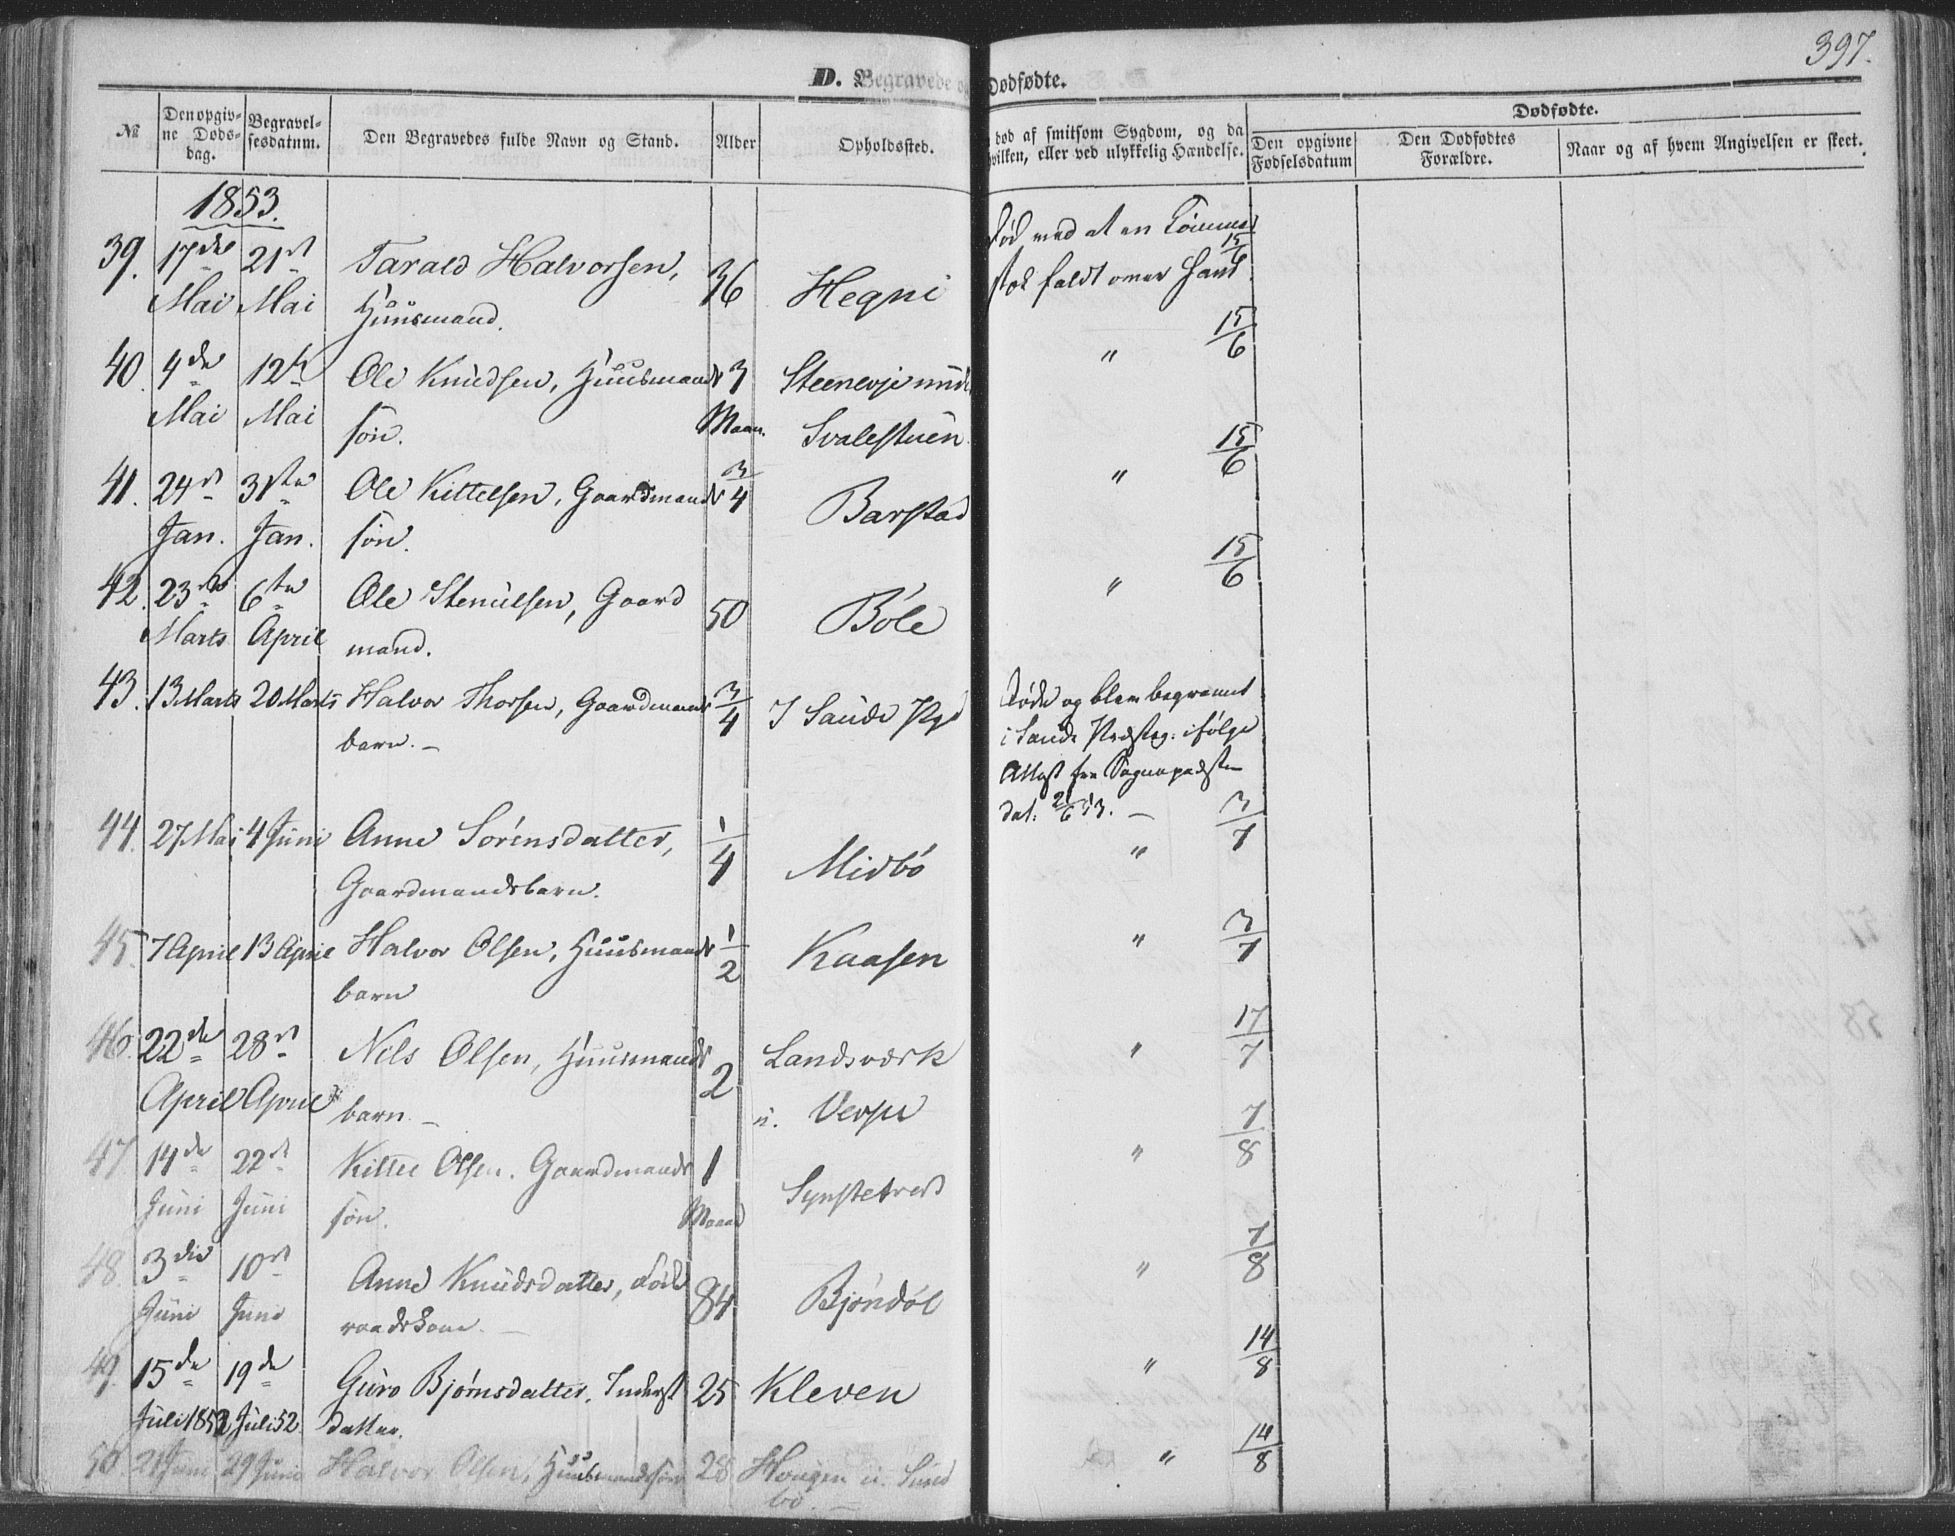 397.
D. Begravede og Dødfødte.
No
Den opgivne Dødsdag.
Begravelsesdatum.
Den Begravedes fulde Navn og Stand.
Alder
Opholdssted.
død af smitsom Sygdom, og da
hvilken, eller ved ulykkelig Hændelse.
Dødfødte.
Den opgivne Fødselsdatum
Den Dødfødtes Forældre.
Naar og af hvem Angivelsen er skeet.
1853.
39. 17de Mai 21st Mai Tarald Halvorsen, Huusmand. 36 Hegni
Død ved at en Tømmer
stok faldt over ham. 15/6
40. 4de Mai 12te Mai Ole Knudsen, Huusmands søn. 3 Maan. Svalestuen " 15/6
41. 24de Jan. 31te Jan. Ole Kittelsen, Gaardmands søn. 3/4 Barstad " 15/6
42. 23de Marts 6te April Ole Stenulsen, Gaardmand. 50 Bøle " 15/6
43. 13 Marts 20 Marts Halvor Thorsen, Gaardmands barn. 3/4 I Saude Pgd
Døde og blev begravet
i Saude Præsteg: ifølge
Attest fra Sognepræsten
dat:
44. 27 Mai 4 Juni Anne Sørensdatter, Gaardmandsbarn. 1/4 Midbø " 3/7
45. 7 April 13 April Halvor Olsen, Huusmands barn 1/2 Kaasen " 3/7
46. 22de April 28de April Nils Olsen, Huusmands barn. 2 Landsværk u. Verpe " 17/7
47 14de Juni 22de Juni Kittel Olsen. Gaardmands søn. 1 Maaned Synstetved " 7/8
48. 3die Juni 10de Juni Anne Knudsdatter, Føderaadskone. 84 Bjøndøl " 7/8
49. 15de Juli 1852 19de Juli 52. Guro Bjørnsdatter, Inderst datter. 25 Kleven " 14/8
50. 21 Juni 29 Juni Halvor Olsen, Huusmandssøn 28 Hougen u. Sundbø. " 14/8